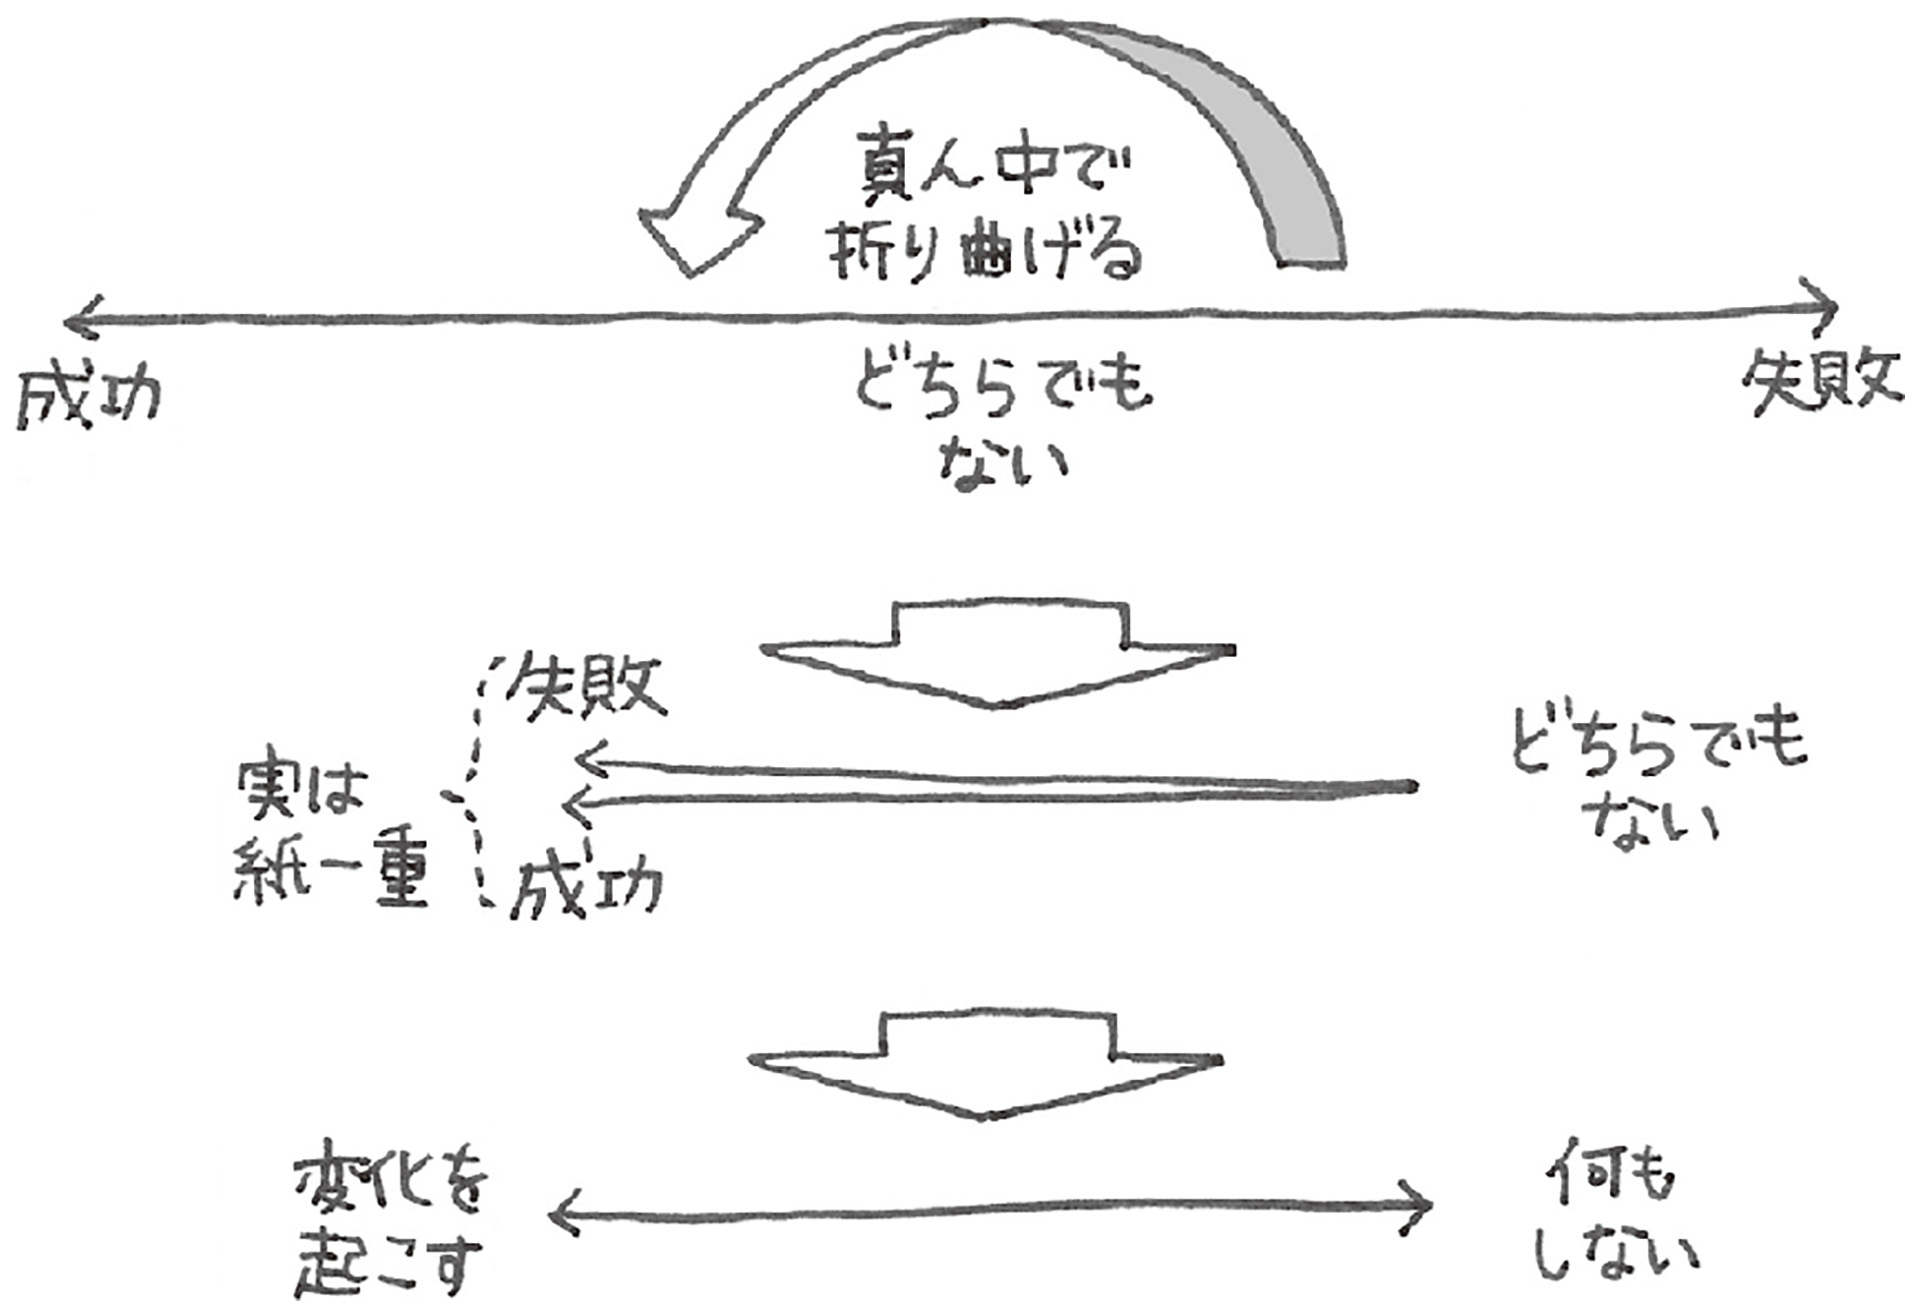 真ん中で
折り曲げる
成功
どちらでも
ない
失敗
実は
紙一重
失敗
成功
どちらでも
ない
変化を
起こす
何も
しない